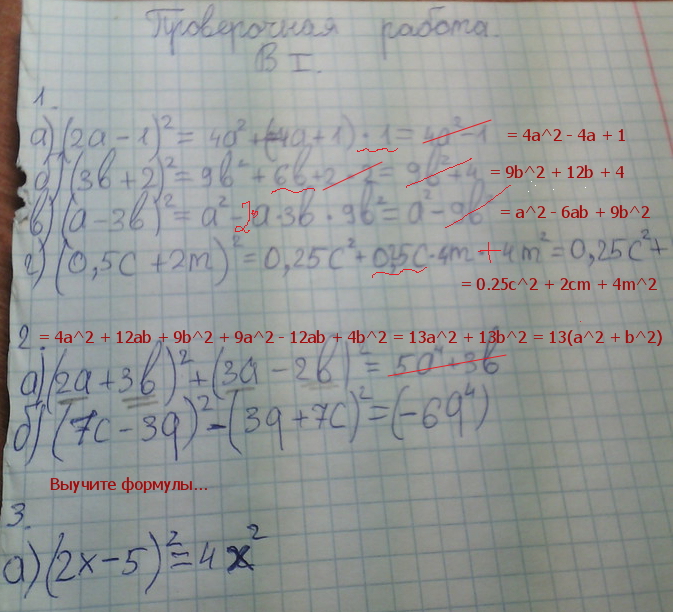 Проверочная работа.
В I.
1.
а) (2a - 1)² = 4a² + (-4a + 1) · 1 = 4a² - 1 = 4a^2 - 4a + 1
б) (3b + 2)² = 9b² + 6b + 2 · 2 = 9b² + 4 = 9b^2 + 12b + 4
в) (a - 3b)² = a² - 2 · a · 3b · 9b² = a² - 9b² = a^2 - 6ab + 9b^2
г) (0,5c + 2m)² = 0,25c² + 0,5c · 4m + 4m² = 0,25c² +
= 0.25c^2 + 2cm + 4m^2
2. = 4a^2 + 12ab + 9b^2 + 9a^2 - 12ab + 4b^2 = 13a^2 + 13b^2 = 13(a^2 + b^2)
а) (2a + 3b)² + (3a - 2b)² = 5a⁴ + 3b
б) (7c - 3q)² - (3q + 7c)² = (-6q⁴)
Выучите формулы...
3.
а) (2x - 5)² = 4x²